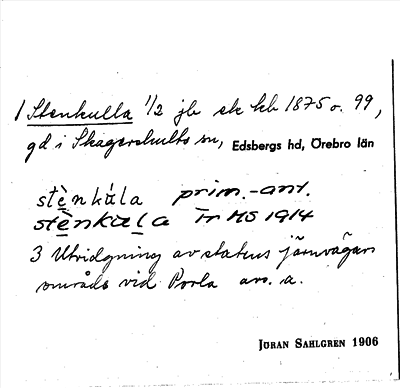 1 Stenkulla 1/2 jb ek kb 1875 o. 99,
gd i Skagershults sn, Edsbergs hd, Örebro län
stènkúla prim.-ant.
stènkula Tr HS 1914
3 Utvidgning av statens järnvägars
område vid Porla anv. a.
JÖRAN SAHLGREN 1906